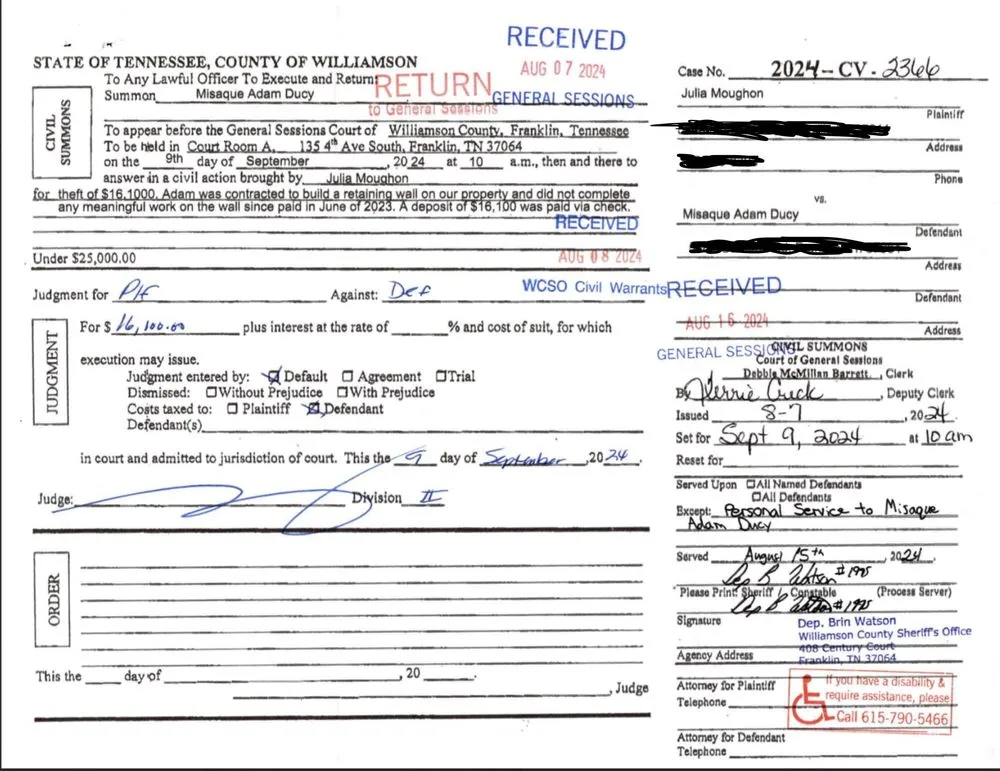 RECEIVED
AUG 07 2024
GENERAL SESSIONS
RETURN
to General Sessions
STATE OF TENNESSEE, COUNTY OF WILLIAMSON
To Any Lawful Officer To Execute and Return:
Summon Misaque Adam Ducy
CIVIL SUMMONS
To appear before the General Sessions Court of Williamson County, Franklin, Tennessee
To be held in Court Room A, 135 4th Ave South, Franklin, TN 37064
on the 9th day of September, 2024 at 10 a.m., then and there to
answer in a civil action brought by Julia Moughon
for theft of $16,1000. Adam was contracted to build a retaining wall on our property and did not complete
any meaningful work on the wall since paid in June of 2023. A deposit of $16,100 was paid via check.
RECEIVED
AUG 08 2024
WCSO Civil Warrants
Under $25,000.00
Judgment for P/f Against: Def
JUDGMENT
For $ 16,100.00 plus interest at the rate of % and cost of suit, for which
execution may issue.
Judgment entered by: ☑ Default ☐ Agreement ☐ Trial
Dismissed: ☐ Without Prejudice ☐ With Prejudice
Costs taxed to: ☐ Plaintiff ☑ Defendant
Defendant(s)
in court and admitted to jurisdiction of court. This the 9 day of September, 2024.
Judge: Division II
ORDER
This the day of , 20
, Judge
Case No. 2024-CV-2366
Julia Moughon
Plaintiff
Address
Phone
vs.
Misaque Adam Ducy
Defendant
Address
RECEIVED
Defendant
AUG 16 2024
Address
GENERAL SESSIONS
CIVIL SUMMONS
Court of General Sessions
Debbie McMillan Barrett, Clerk
By , Deputy Clerk
Issued 8-7, 2024.
Set for Sept 9, 2024 at 10 am
Reset for
Served Upon ☐ All Named Defendants
☐ All Defendants
Except: Personal Service to Misaque
Adam Ducy
Served August 15th, 2024.
Dep B Watson #1925
Please Print: Sheriff / Constable (Process Server)
Dep B Watson #1925
Signature
Dep. Brin Watson
Williamson County Sheriff's Office
408 Century Court
Agency Address Franklin, TN 37064
Attorney for Plaintiff
Telephone
If you have a disability &
require assistance, please
Call 615-790-5466
Attorney for Defendant
Telephone